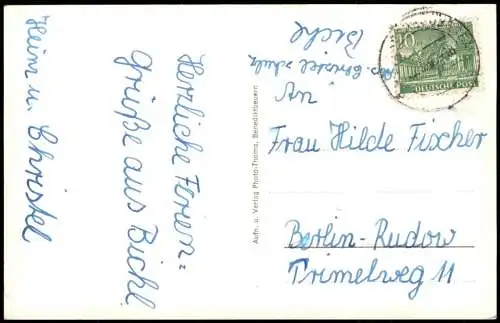 Herzliche Ferien=
grüße aus Bichl
Heim u. Christel
Aufn. u. Verlag Photo-Thoma, Benediktbeuern
Abs. Christel Schulz
Bichl
An
Frau Hilde Fischer
Berlin-Rudow
Trimelweg 11
10
DEUTSCHE POST